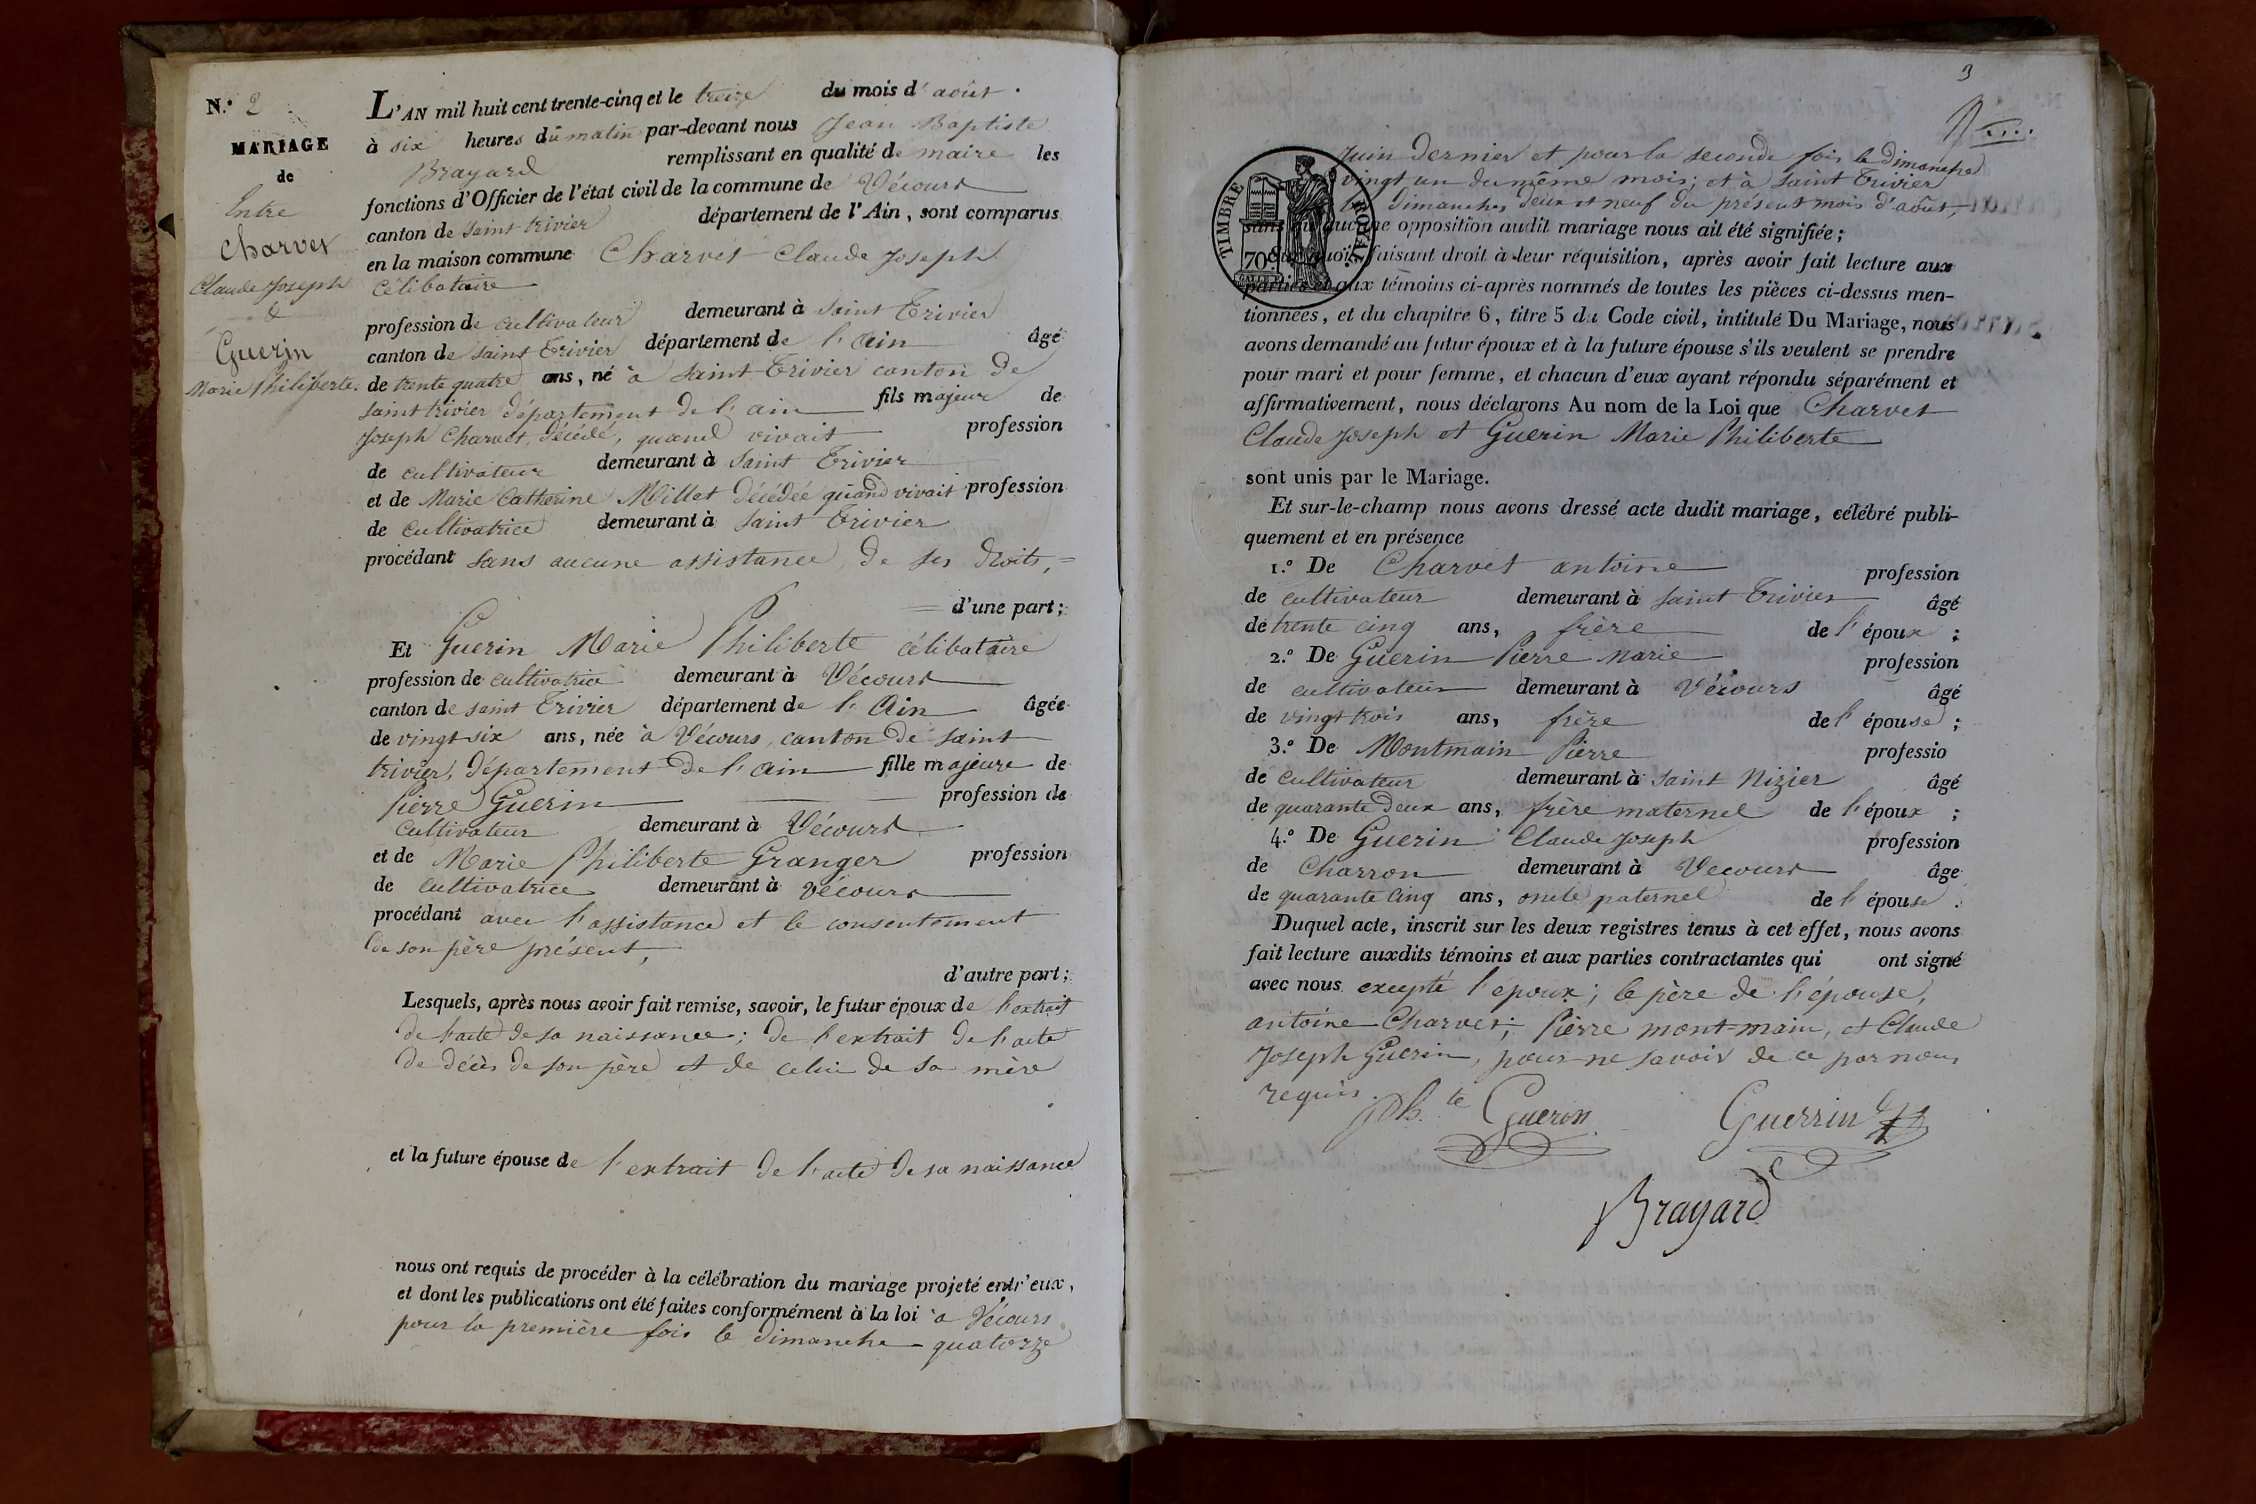 N.° 2
MARIAGE
de
Entre
Charvet
Claude Joseph
&
Guerin
Marie Philiberte.
L'AN mil huit cent trente-cinq et le treize du mois d'août.
à six heures du matin par-devant nous Jean Baptiste
Brayard remplissant en qualité de maire les
fonctions d'Officier de l'état civil de la commune de Vécours
canton de Saint trivier département de l'Ain, sont comparus
en la maison commune Charvet Claude Joseph
célibataire
profession de cultivateur demeurant à Saint Trivier
canton de Saint Trivier département de l'Ain âgé
de trente quatre ans, né à Saint Trivier canton de
Saint trivier département de l'ain fils majeur de
Joseph Charvet, décédé, quand vivait profession
de cultivateur demeurant à Saint Trivier
et de Marie Catherine Millet décédée quand vivait profession
de cultivatrice demeurant à Saint Trivier
procédant sans aucune assistance, de ses droits, =
= d'une part;
Et Guerin Marie Philiberte célibataire
profession de cultivatrice demeurant à Vécours
canton de Saint Trivier département de l'Ain âgée
de vingt six ans, née à Vécours, canton de Saint
trivier, département de l'Ain fille majeure de
Pierre Guerin profession de
cultivateur demeurant à Vécours
et de Marie Philiberte Granger profession
de cultivatrice demeurant à Vécours
procédant avec l'assistance et le consentement
de son père présent,
d'autre part;
Lesquels, après nous avoir fait remise, savoir, le futur époux de l'extrait
de l'acte de sa naissance; de l'extrait de l'acte
de décès de son père et de celui de sa mère
et la future épouse de l'extrait de l'acte de sa naissance
nous ont requis de procéder à la célébration du mariage projeté entr'eux,
et dont les publications ont été faites conformément à la loi à Vécours
pour la première fois le dimanche quatorze
3
TIMBRE ROYAL
70
Juin dernier et pour la seconde fois le dimanche
vingt un du même mois; et à Saint Trivier
les Dimanches deux et neuf du présent mois d'août,
sans qu'aucune opposition audit mariage nous ait été signifiée;
Sur quoi, faisant droit à leur réquisition, après avoir fait lecture aux
parties et aux témoins ci-après nommés de toutes les pièces ci-dessus men-
tionnées, et du chapitre 6, titre 5 du Code civil, intitulé Du Mariage, nous
avons demandé au futur époux et à la future épouse s'ils veulent se prendre
pour mari et pour femme, et chacun d'eux ayant répondu séparément et
affirmativement, nous déclarons Au nom de la Loi que Charvet
Claude Joseph et Guerin Marie Philiberte
sont unis par le Mariage.
Et sur-le-champ nous avons dressé acte dudit mariage, célébré publi-
quement et en présence
1.° De Charvet antoine profession
de cultivateur demeurant à Saint Trivier âgé
de trente cinq ans, frère de l'époux;
2.° De Guerin Pierre Marie profession
de cultivateur demeurant à Vécours âgé
de vingt trois ans, frère de l'épouse;
3.° De Montmain Pierre professio
de cultivateur demeurant à Saint Nizier âgé
de quarante deux ans, frère maternel de l'époux;
4.° De Guerin Claude Joseph profession
de Charron demeurant à Vecours âge
de quarante cinq ans, oncle paternel de l'épouse.
Duquel acte, inscrit sur les deux registres tenus à cet effet, nous avons
fait lecture auxdits témoins et aux parties contractantes qui ont signé
avec nous excepté l'époux; le père de l'épouse,
antoine Charvet; Pierre mont-main, et Claude
Joseph Guerin, pour ne savoir de ce par nous
requis.
Ph.te Gueron Guerrin
Brayard